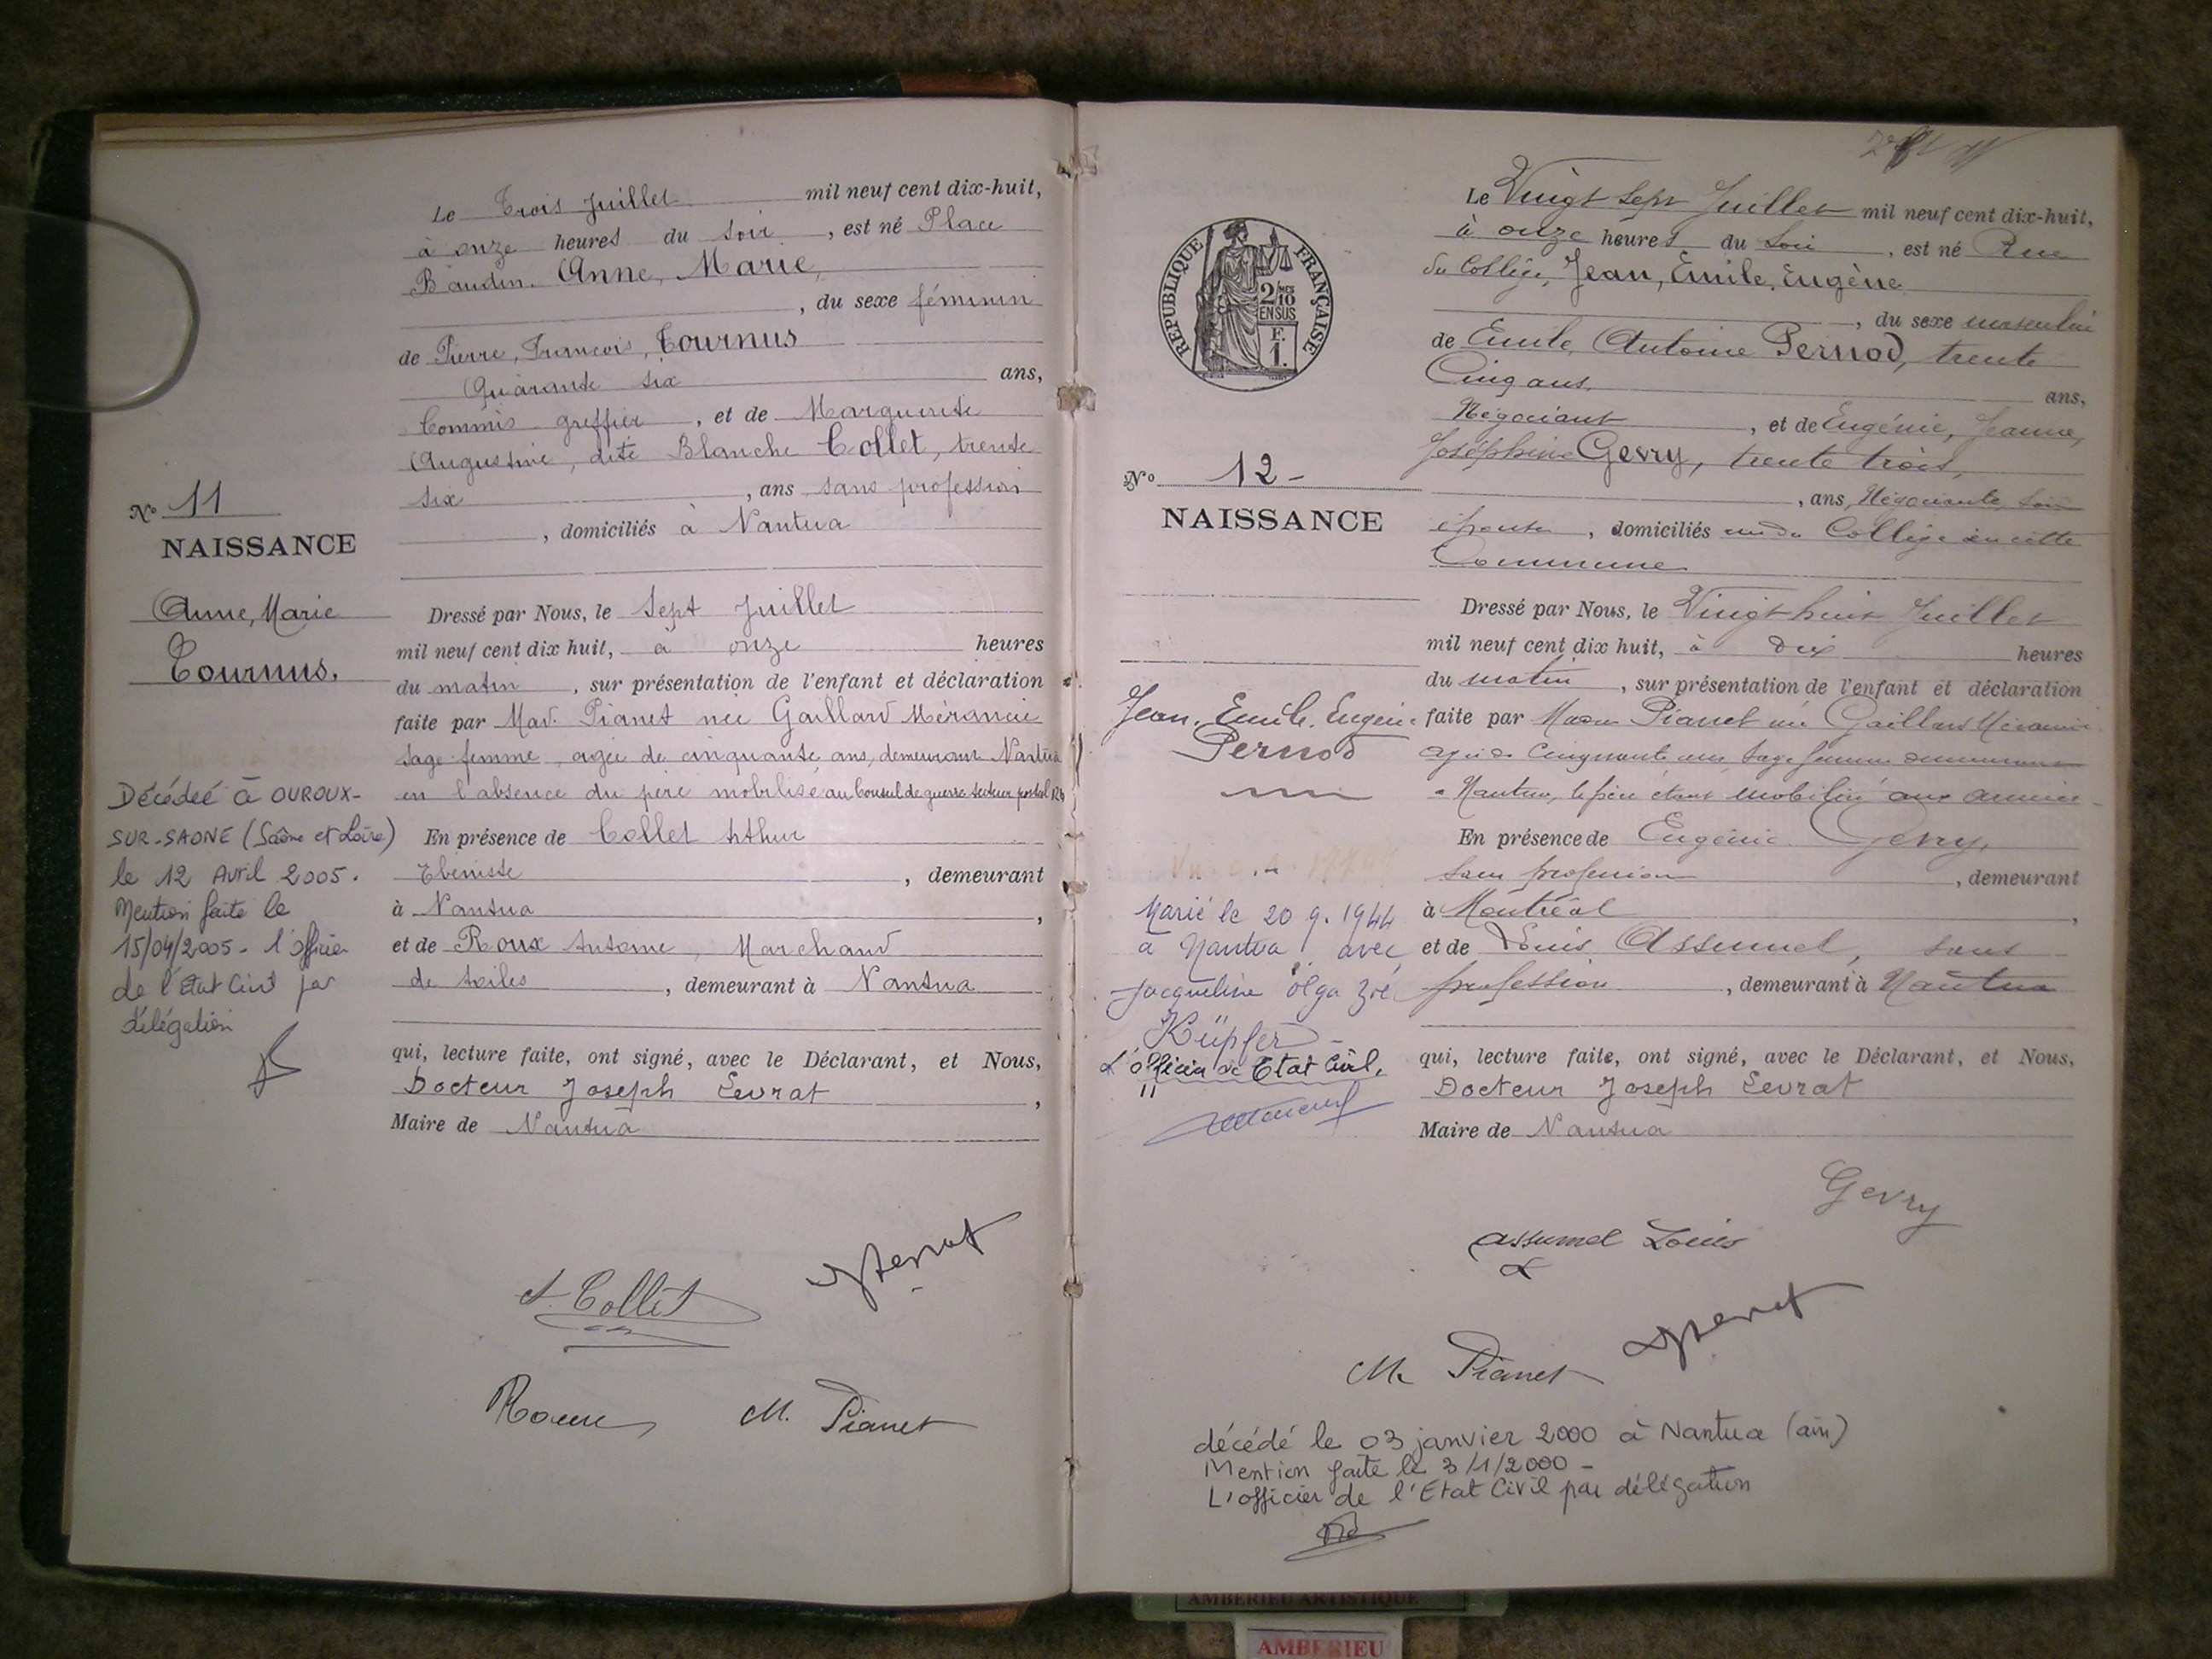 Le Trois Juillet mil neuf cent dix-huit,
à onze heures du soir, est né Place
Baudin. Anne, Marie,
, du sexe féminin
de Pierre, François, Tournus
Quarante six ans,
Commis greffier, et de Marguerite
Augustine, dite Blanche Collet, trente
six, ans sans profession
, domiciliés à Nantua
No 11
NAISSANCE
Anne, Marie
Tournus.
Dressé par Nous, le Sept Juillet
mil neuf cent dix huit, à onze heures
du matin, sur présentation de l'enfant et déclaration
faite par Mad. Pianet née Gaillard Mérancie
sage-femme, agée de cinquante ans, demeurant Nantua
en l'absence du père mobilisé au Conseil de guerre secteur postal
En présence de Collet Arthur
Ebéniste, demeurant
à Nantua,
et de Roux Antoine, Marchand
de toiles, demeurant à Nantua
qui, lecture faite, ont signé, avec le Déclarant, et Nous,
Docteur Joseph Levrat,
Maire de Nantua
Décédée à OUROUX-
SUR-SAONE (Saône et Loire)
le 12 Avril 2005.
Mention faite le
15/04/2005 - l'officier
de l'Etat Civil par
délégation
A. Collet
Roux
M. Pianet
REPUBLIQUE FRANÇAISE
2/10 MES
EN SUS
F.
1.
Le Vingt sept Juillet mil neuf cent dix-huit,
à onze heures du soir, est né Rue
du Collège, Jean, Emile, Eugène
, du sexe masculin
de Emile, Antoine Pernod, trente
Cinq ans ans,
Négociant, et de Eugénie, Jeanne,
Joséphine Gevry, trente trois,
, ans, Négociante, son
épouse, domiciliés rue du Collège en cette
Commune
No 12 -
NAISSANCE
Jean, Emile, Eugène
Pernod
Dressé par Nous, le Vingt huit Juillet
mil neuf cent dix huit, à dix heures
du matin, sur présentation de l'enfant et déclaration
faite par Pianet née Gaillard Mérancie
agée de Cinquante ans, sage femme demeurant
à Nantua, le père étant mobilisé aux armées -
En présence de Eugénie Gevry,
sans profession, demeurant
à Montréal,
et de Louis Assumel, sans
profession, demeurant à Nantua
qui, lecture faite, ont signé, avec le Déclarant, et Nous,
Docteur Joseph Levrat
Maire de Nantua
Marié le 20 9. 1944
à Nantua avec
Jacqueline Olga Zoé
Küpfer -
L'officier de Etat Civil,
Gevry
Assumel Louis
M. Pianet
décédé le 03 janvier 2000 à Nantua (ain)
Mention faite le 3/1/2000 -
L'officier de l'Etat Civil par délégation
AMBERIEU ARTISTIQUE
AMBERIEU